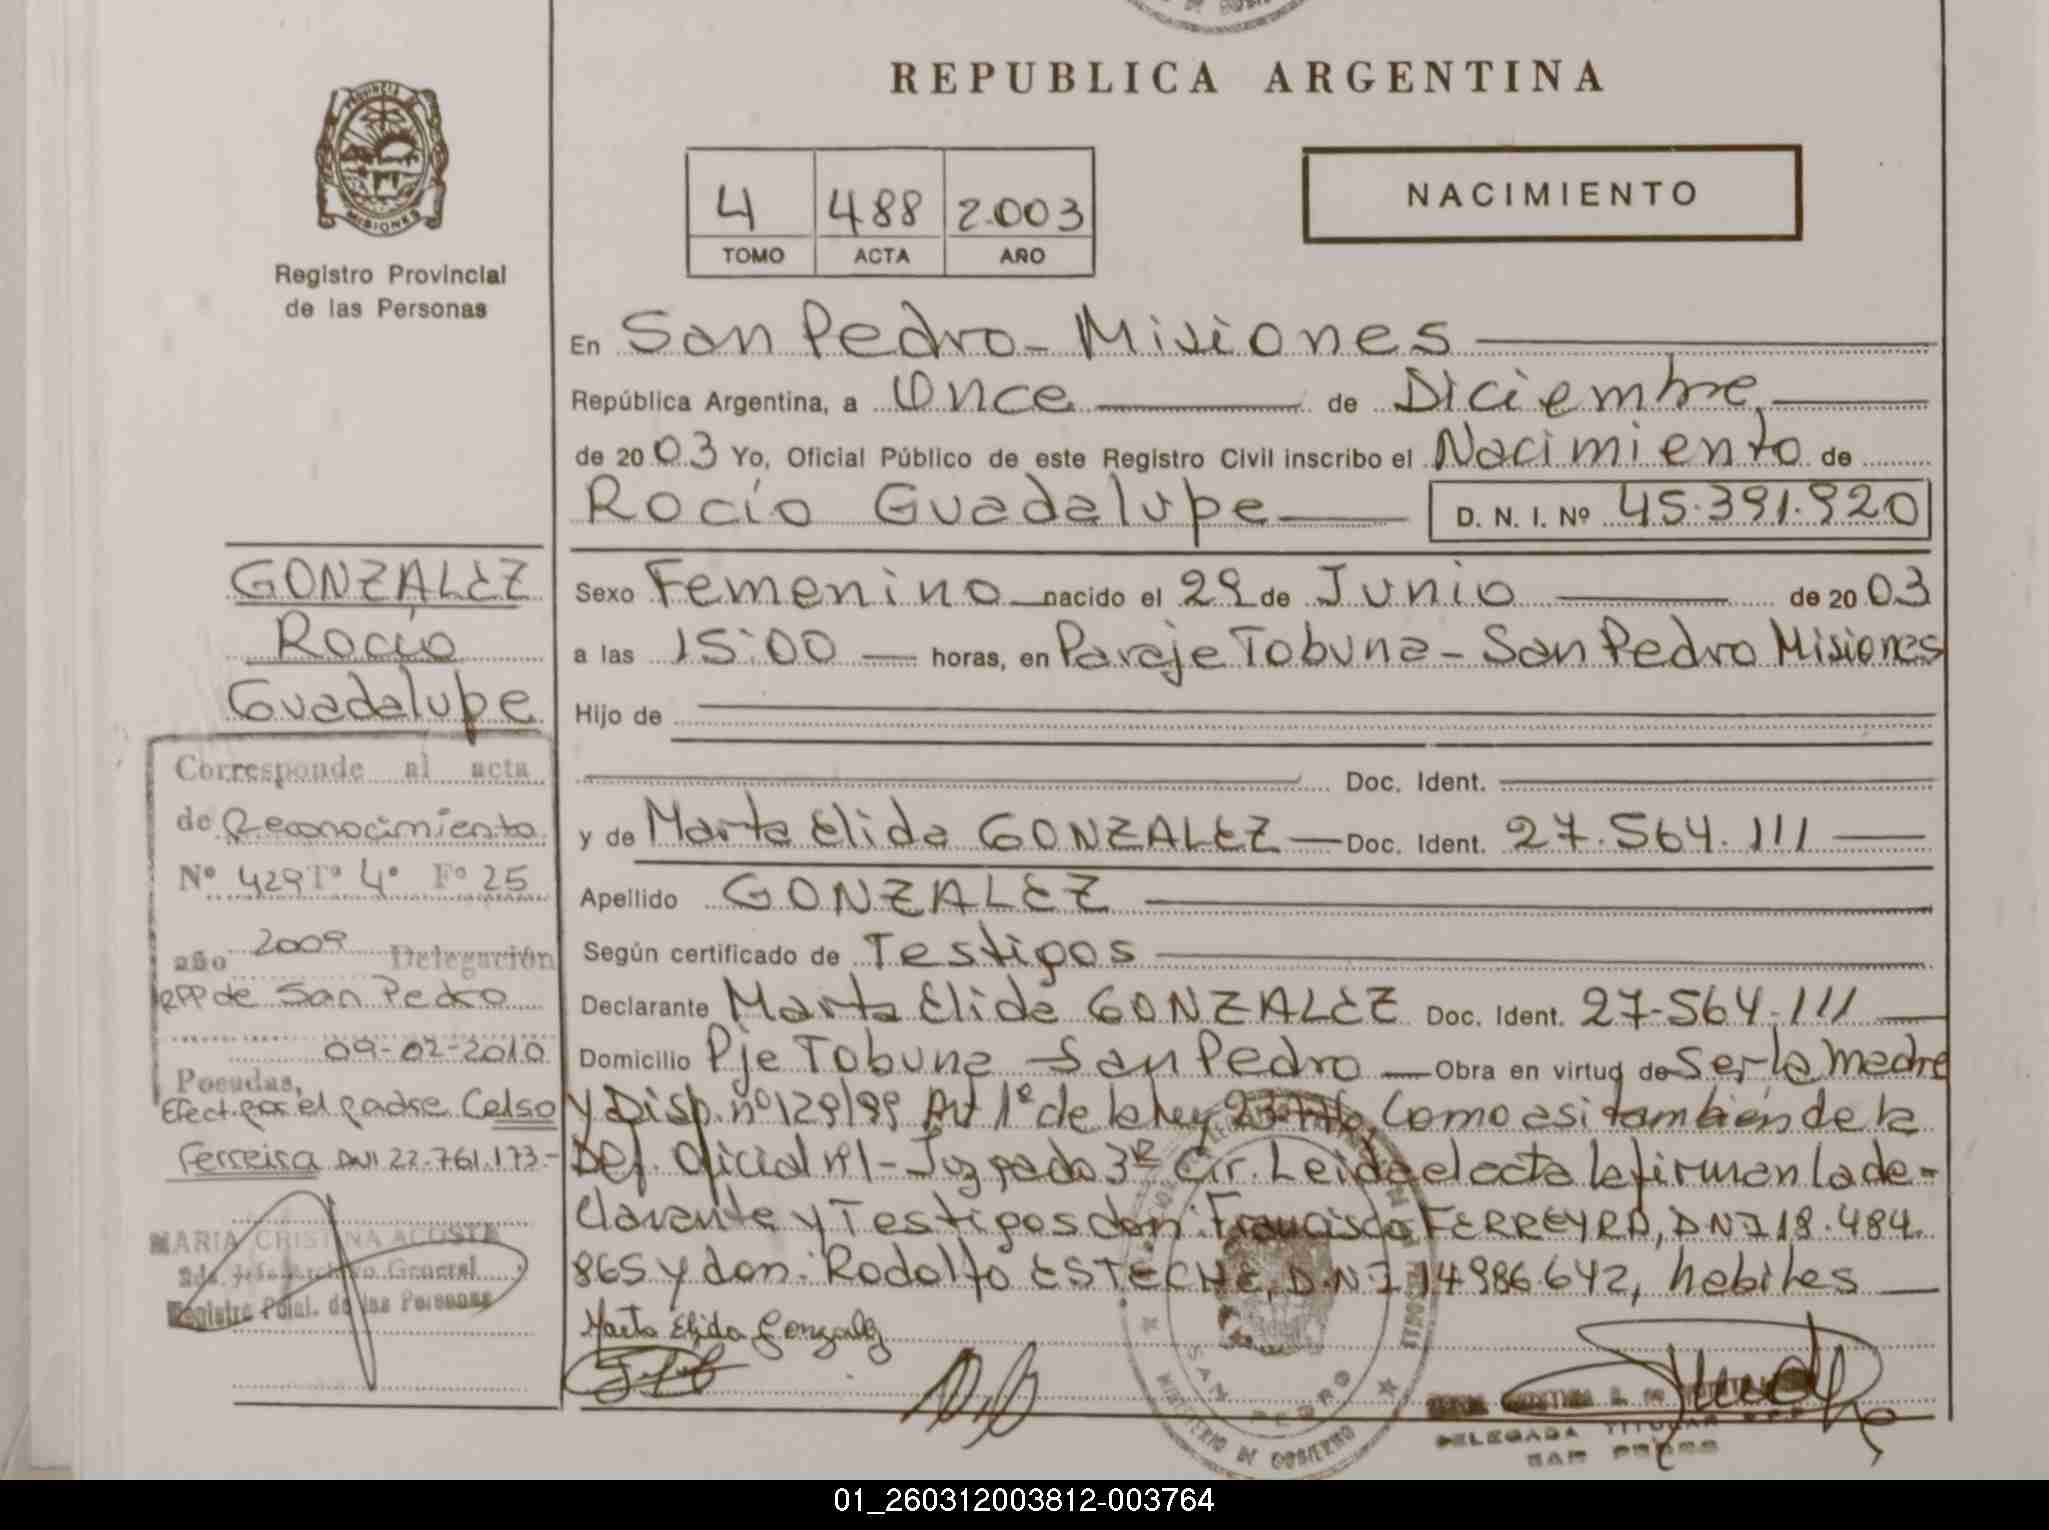 REPUBLICA ARGENTINA
PROVINCIA DE
MISIONES
Registro Provincial
de las Personas
4 488 2.003
TOMO ACTA AÑO
NACIMIENTO
En San Pedro - Misiones
República Argentina, a Once de Diciembre
de 20 03 Yo, Oficial Público de este Registro Civil inscribo el Nacimiento de
Rocío Guadalupe D. N. I. Nº 45.391.920
Sexo Femenino nacido el 29 de Junio de 20 03
a las 15:00 horas, en Paraje Tobuna - San Pedro Misiones
Hijo de
Doc. Ident.
y de Marta Elida GONZALEZ Doc. Ident. 27.564.111
Apellido GONZALEZ
Según certificado de Testigos
Declarante Marta Elida GONZALEZ Doc. Ident. 27-564-111
Domicilio Pje Tobuna - San Pedro Obra en virtud de Ser la Madre
y Disp. nº 129/99 Art 1º de la ley Como asi también de la
Def. Oficial nº1 - Juzgado 3ra Cir. Leida el acta la firman la de-
clarante y Testigos don: Francisco FERREYRA, DNI 18.484.
865 y don: Rodolfo ESTECHE, D.N.I 14986.642, habiles
Marta Elida Gonzalez
GONZALEZ
Rocío
Guadalupe
Corresponde al acta
de Reconocimiento
Nº 429 Tº 4º Fº 25
año 2009 Delegación
RPP de San Pedro
09-02-2010
Posadas,
Efect. por el padre Celso
Ferreira DNI 22.761.173.-
MARIA CRISTINA ACOSTA
Archivo General
Registro Pcial. de las Personas
SAN PEDRO
MINISTERIO DE GOBIERNO
DELEGADA TITULAR
SAN PEDRO
01_260312003812-003764